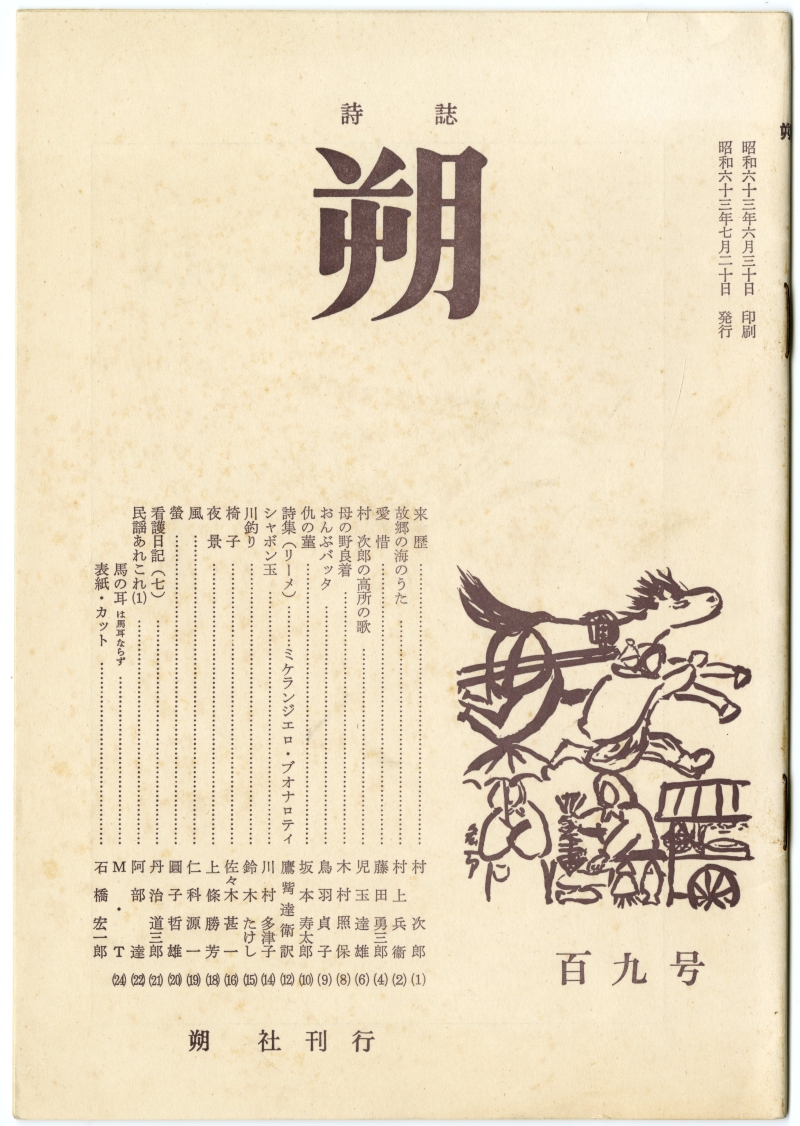 詩誌
朔
昭和六十三年六月三十日 印刷
昭和六十三年七月二十日 発行
来歴…………村次郎(1)
故郷の海のうた…………村上兵衛(2)
愛惜…………藤田勇三郎(4)
村次郎の高所の歌…………児玉達雄(6)
母の野良着…………木村照保(8)
おんぶバッタ…………鳥羽貞子(9)
仇の菫…………坂本寿太郎(10)
詩集(リーメ)…………ミケランジエロ・ブオナロティ 鷹觜達衛訳(12)
シャボン玉…………川村多津子(14)
川釣り…………鈴木たけし(15)
椅子…………佐々木甚一(16)
夜景…………上條勝芳(18)
風…………仁科源一(19)
螢…………圓子哲雄(20)
看護日記(七)…………丹治道三郎(21)
民謡あれこれ(1)…………阿部達(22)
馬の耳は馬耳ならず…………M・T(24)
表紙・カット…………石橋宏一郎
百九号
朔社刊行